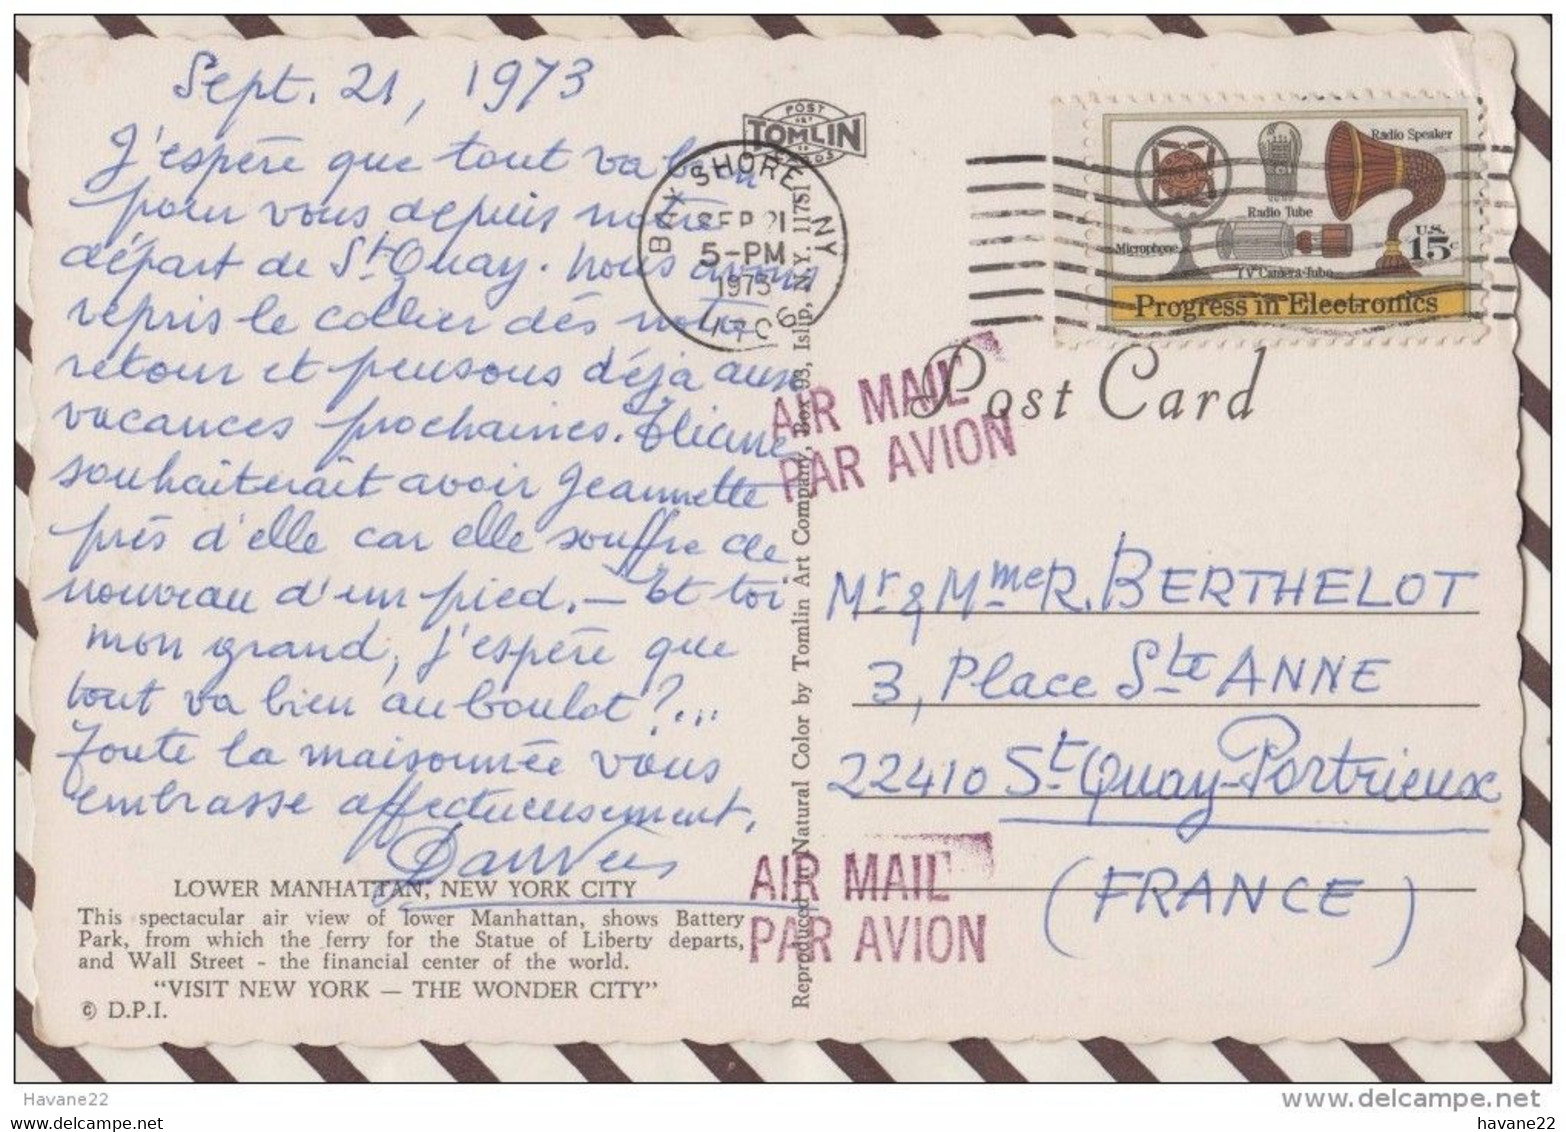 Sept. 21, 1973
J'espère que tout va bien
pour vous depuis notre
départ de St Quay. Nous avons
repris le collier dès notre
retour et pensons déjà aux
vacances prochaines. Eliane
souhaiterait avoir Jeannette
près d'elle car elle souffre de
nouveau d'un pied. — Et toi
mon grand, j'espère que
tout va bien au boulot?...
Toute la maisonnée vous
embrasse affectueusement,
LOWER MANHATTAN, NEW YORK CITY
This spectacular air view of lower Manhattan, shows Battery
Park, from which the ferry for the Statue of Liberty departs,
and Wall Street - the financial center of the world.
"VISIT NEW YORK — THE WONDER CITY"
© D.P.I.
POST
TOMLIN
BAY SHORE NY
SEP 21
5-PM
1973
Reproduced in Natural Color by Tomlin Art Company, Box 93, Islip, N.Y. 11751
Radio Speaker
Radio Tube
Microphone
TV Camera Tube
U.S.
15c
Progress in Electronics
AIR MAIL
PAR AVION
Post Card
Mr & Mme R. BERTHELOT
3, Place Ste ANNE
22410 St Quay-Portrieux
(FRANCE)
AIR MAIL
PAR AVION
Havane22
www.delcampe.net
Havane22
havane22